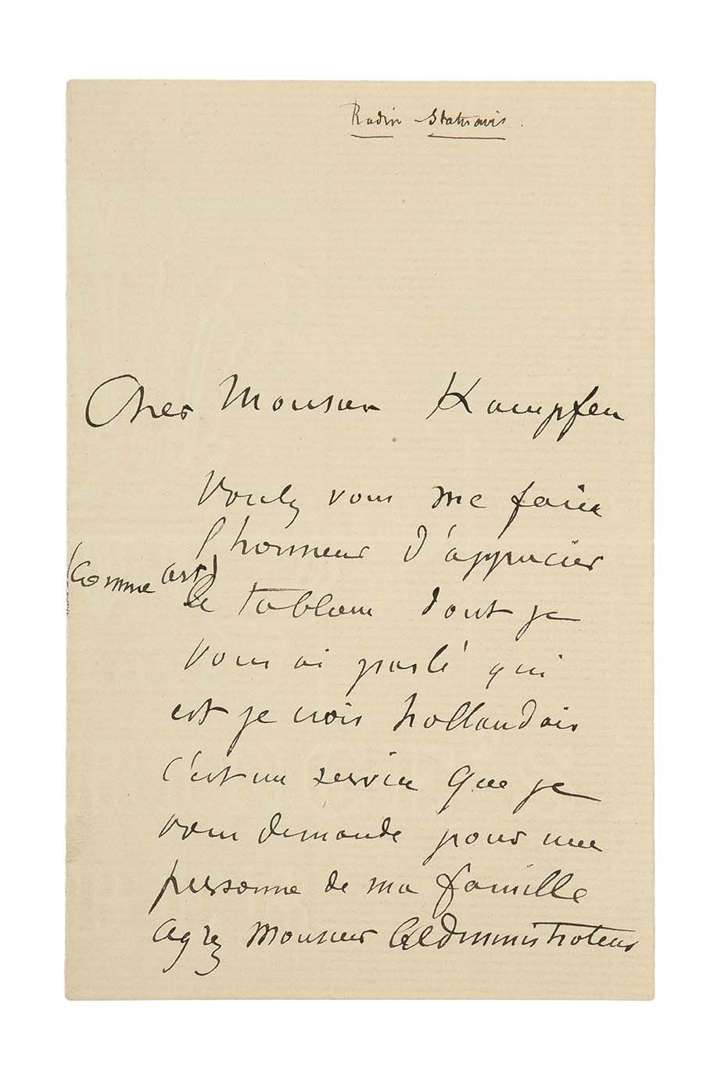 Rodin Statuaire.
Cher Monsieur Kaempfen
Voulez vous me faire
l'honneur d'apprecier
(comme art)
le tableau dont je
vous ai parlé qui
est je crois hollandais
c'est un service que je
vous demande pour une
personne de ma famille
agrez Monsieur l'administrateur